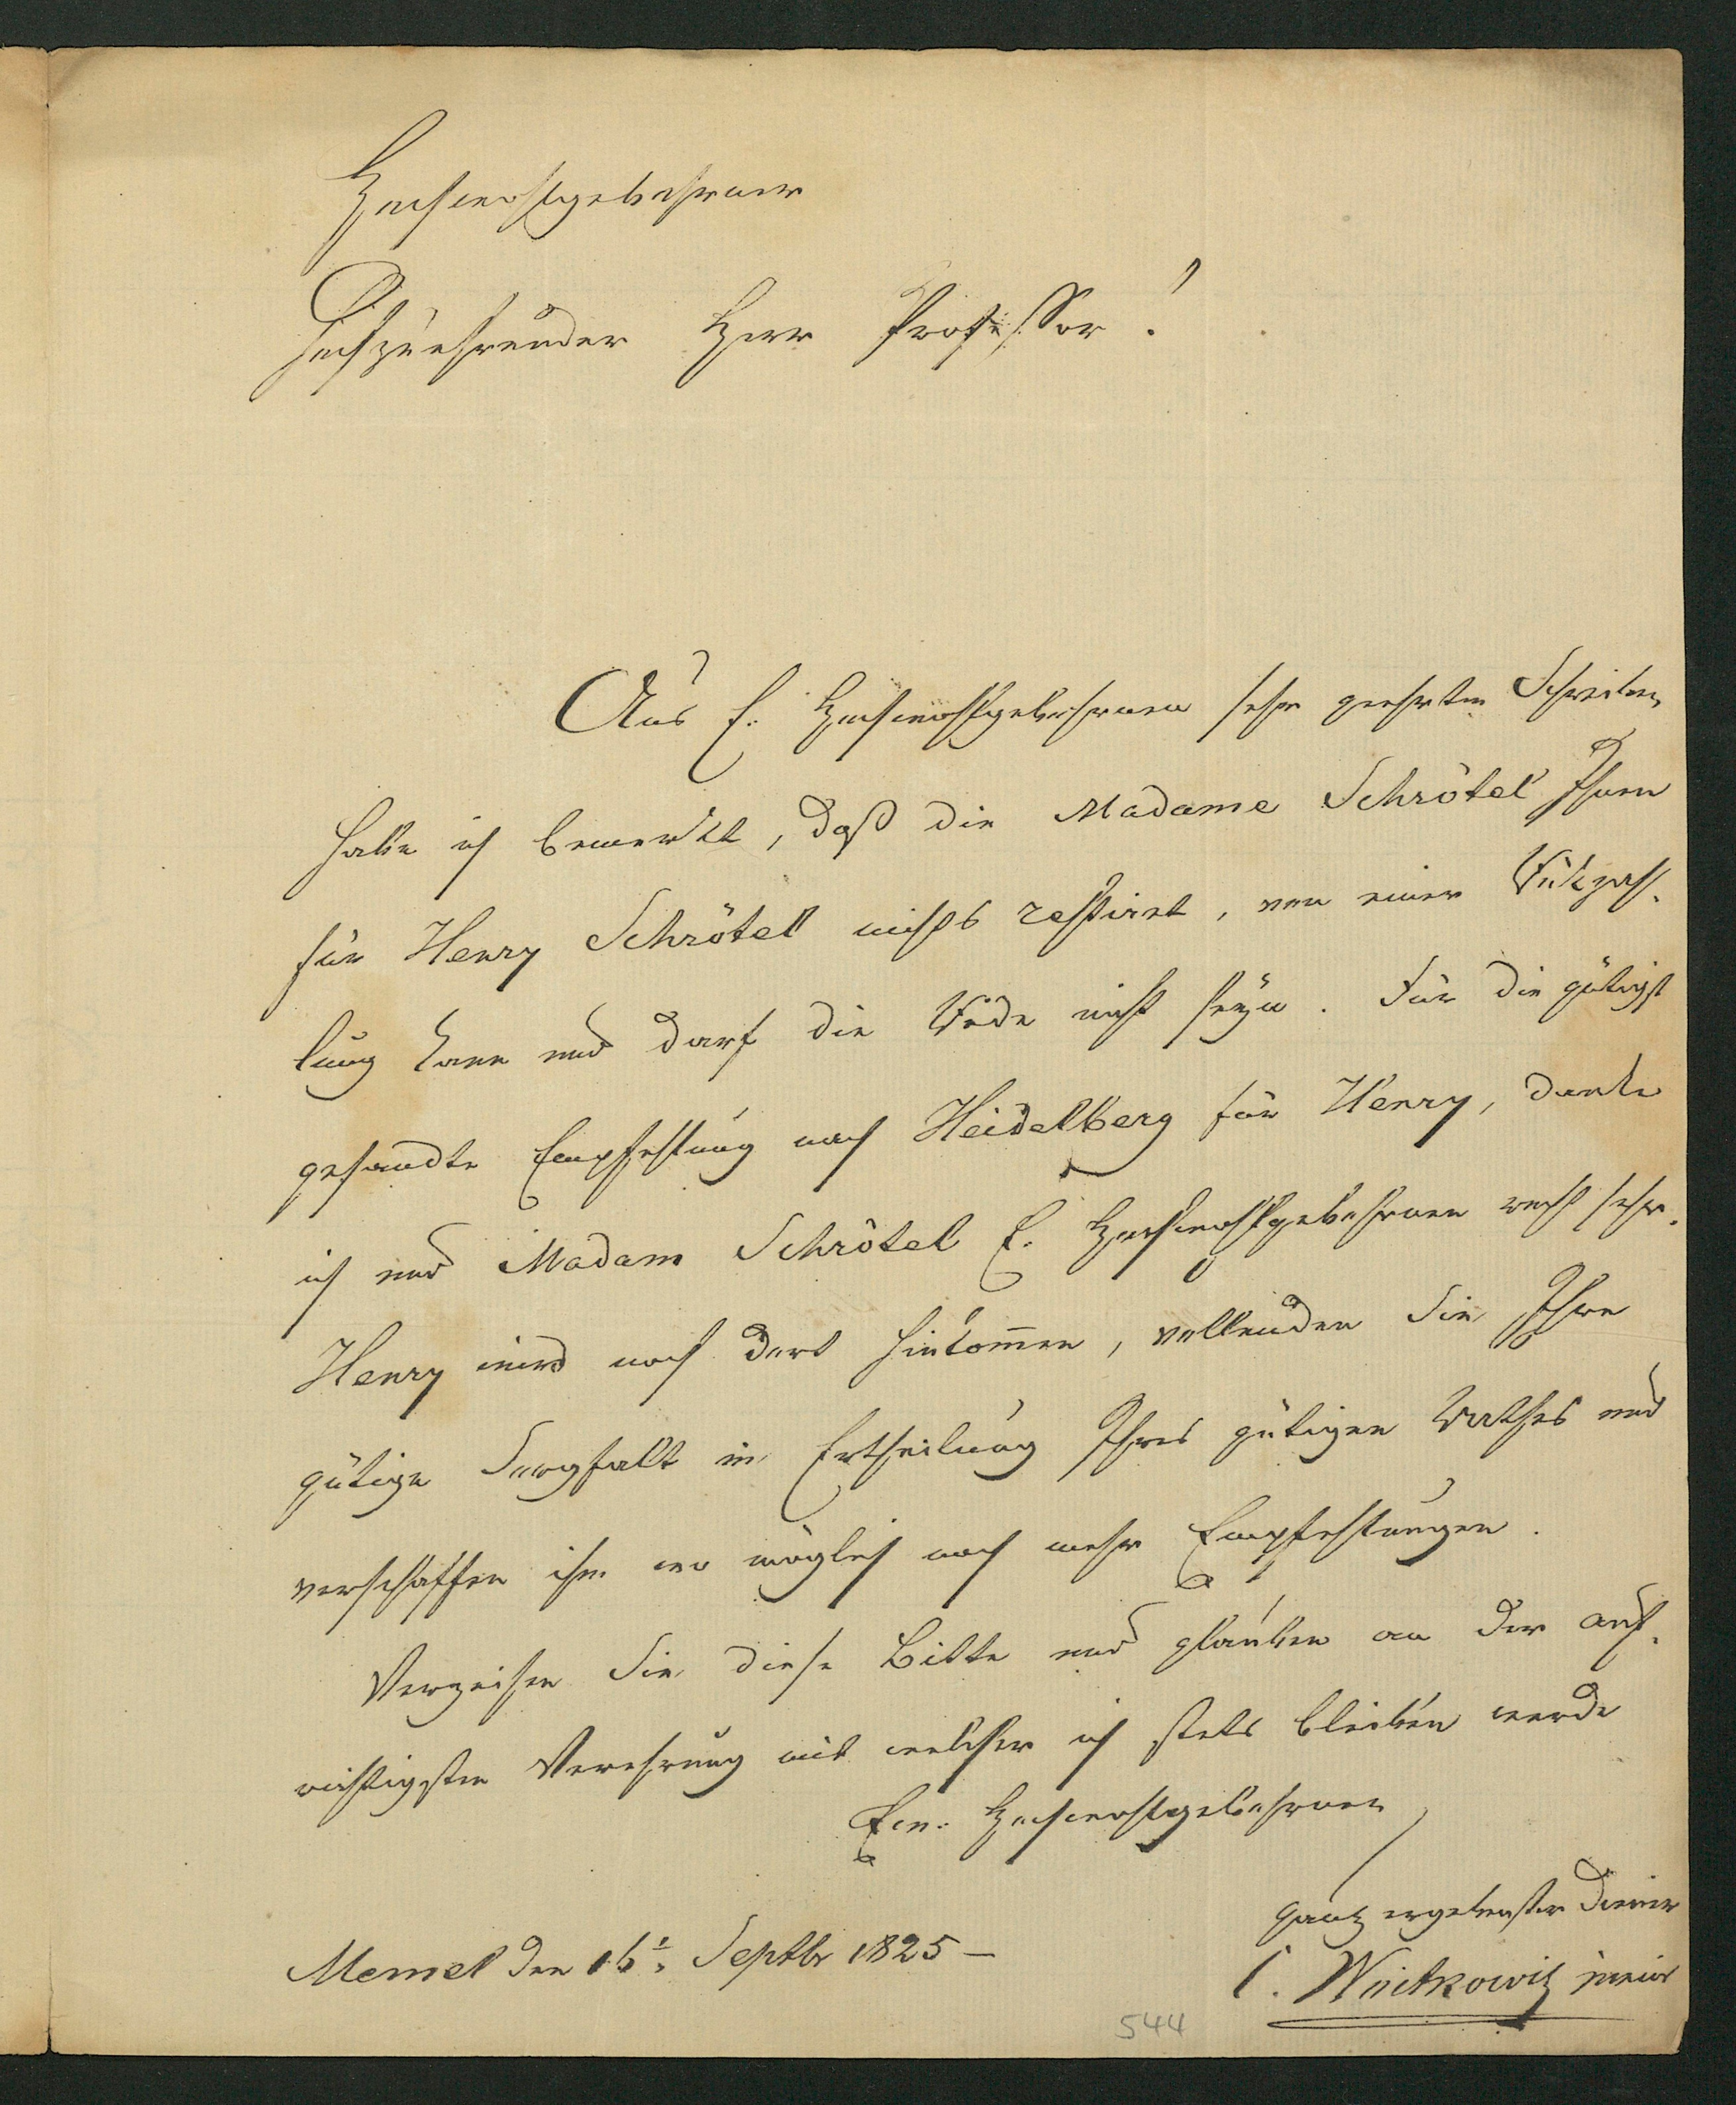 Hochwohlgebohrner
Hochzuehrender Herr Professor!
Aus E. Hochwohlgebohrnen sehr geehrten Schreiben
habe ich bemerkt, daß die Madame Schrötel Ihnen
für Henry Schrötel nichts restiret, von einer Rükzah-
lung kann und darf die Rede nicht seyn. Für die gütigst
gesandte Empfehlung nach Heidelberg für Henry, danke
ich und Madam Schrötel E. Hochwohlgebohrnen recht sehr.
Henry wird noch dort hinkommen, vollenden Sie Ihre
gütige Sorgfalt in Ertheilung Ihres gütigen Rathes und
verschaffen ihm wo möglich noch mehr Empfehlungen.
Verzeihen Sie diese Bitte und glauben an der auf-
richtigsten Verehrung mit welcher ich stets bleiben werde
Ew. Hochwohlgebohrnen
ganz ergebenster Diener
Memel den 16t. Septbr 1825 –
C. Woitkowitz junior
544